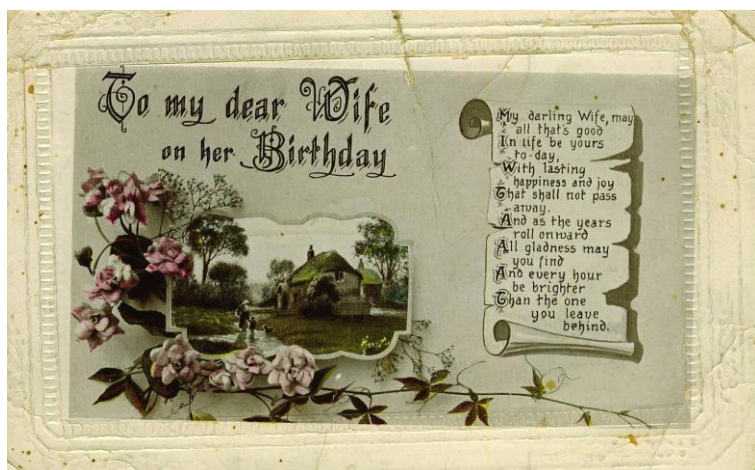 To my dear Wife
on her Birthday
My darling Wife, may
all that's good
In life be yours
to-day,
With lasting
happiness and joy
That shall not pass
away.
And as the years
roll onward
All gladness may
you find
And every hour
be brighter
Than the one
you leave
behind.